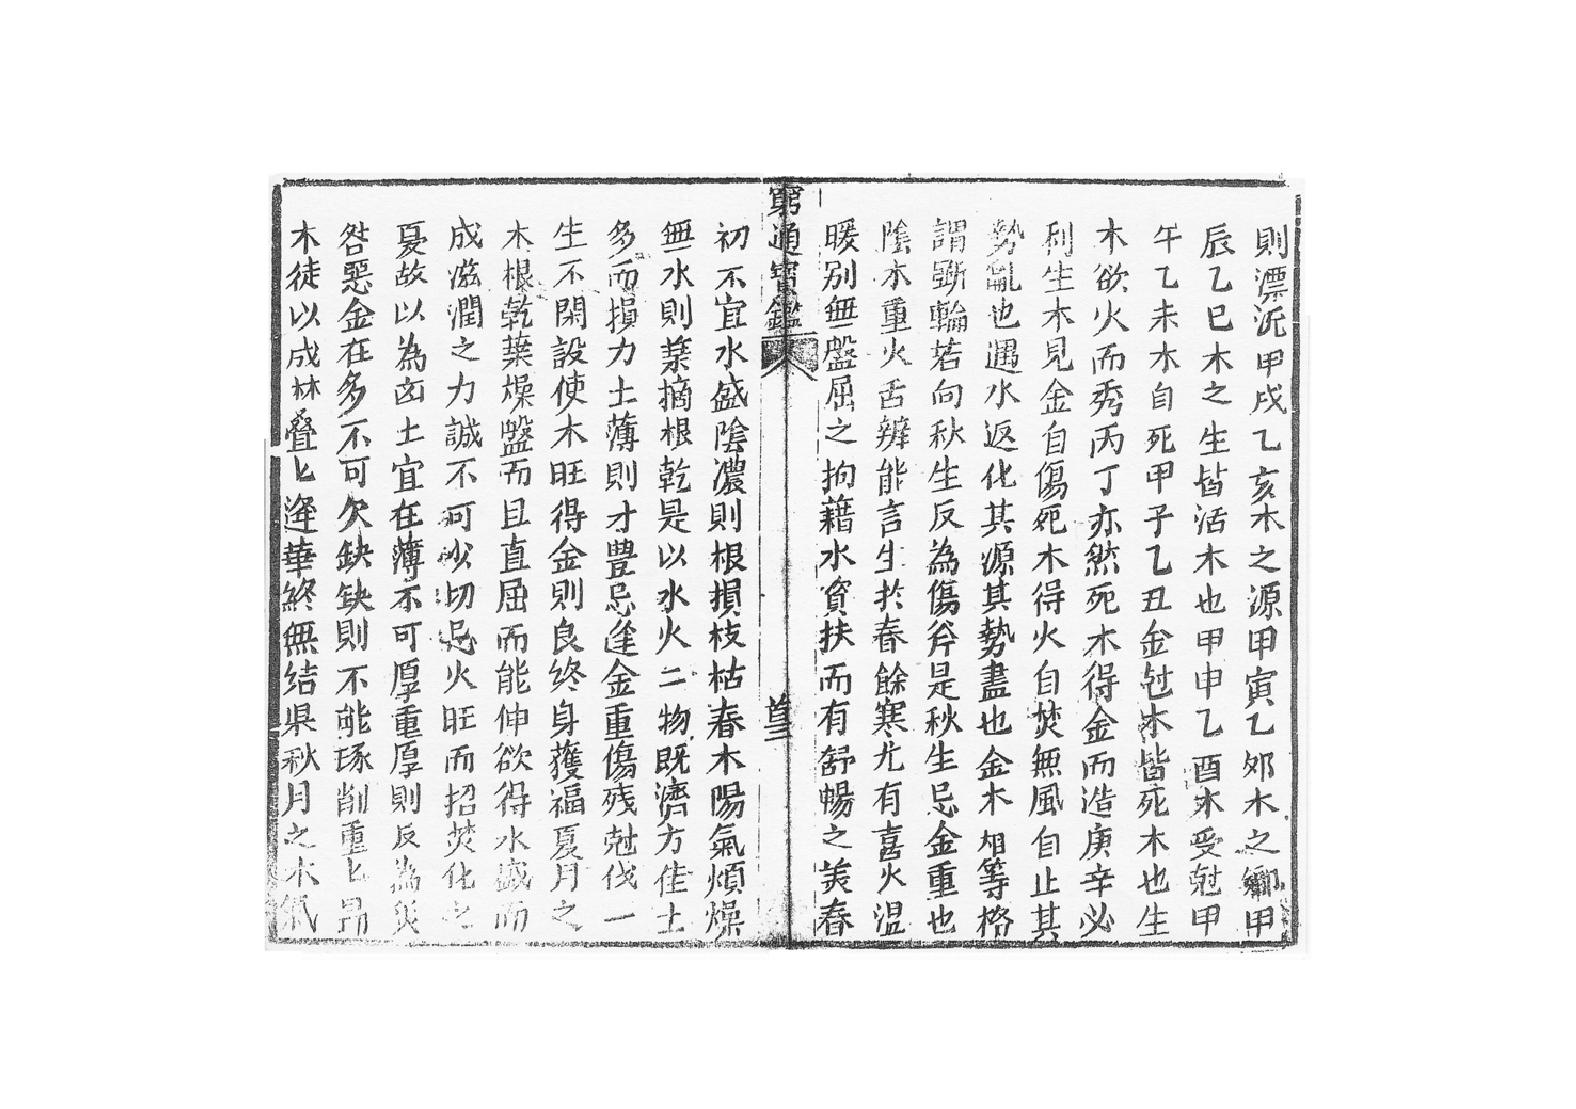 則漂沉甲戌乙亥木之源甲寅乙夘木之鄉甲
辰乙巳木之生皆活木也甲申乙酉木受尅甲
午乙未木自死甲子乙丑金尅木皆死木也生
木欲火而秀丙丁亦然死木得金而造庚辛必
利生木見金自傷死木得火自焚無風自止其
勢亂也遇水返化其源其勢盡也金木相等格
謂斵輪若向秋生反為傷斧是秋生忌金重也
陰木重火舌辨能言生於春餘寒尤有喜火温
暖别無盤屈之拘藉水資扶而有舒暢之美春
窮通寶鑑
初不宜水盛陰濃則根損枝枯春木陽氣煩燥
無水則葉摘根乾是以水火二物既濟方佳土
多而損力土薄則才豐忌逢金重傷残尅伐一
生不閑設使木旺得金則良終身獲福夏月之
木根乾葉燥盤而且直屈而能伸欲得水盛而
成滋潤之力誠不可少切忌火旺而招焚化之
憂故以為凶土宜在薄不可厚重厚則反為災
咎惡金在多不可欠缺缺則不能琢削重匕昂
木徒以成林疊匕逢華終無结果秋月之木氣